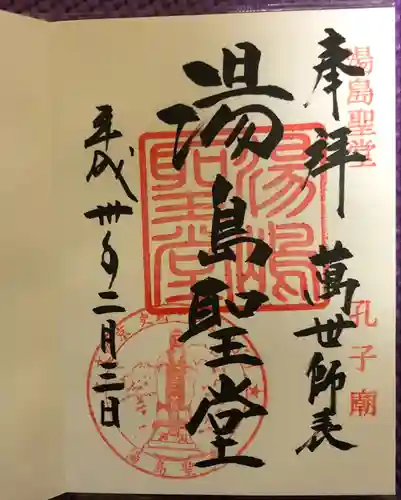 奉拝 萬世師表
湯島聖堂
孔子廟
湯島聖堂
湯嶋聖堂
平成卅年二月三日
湯島聖